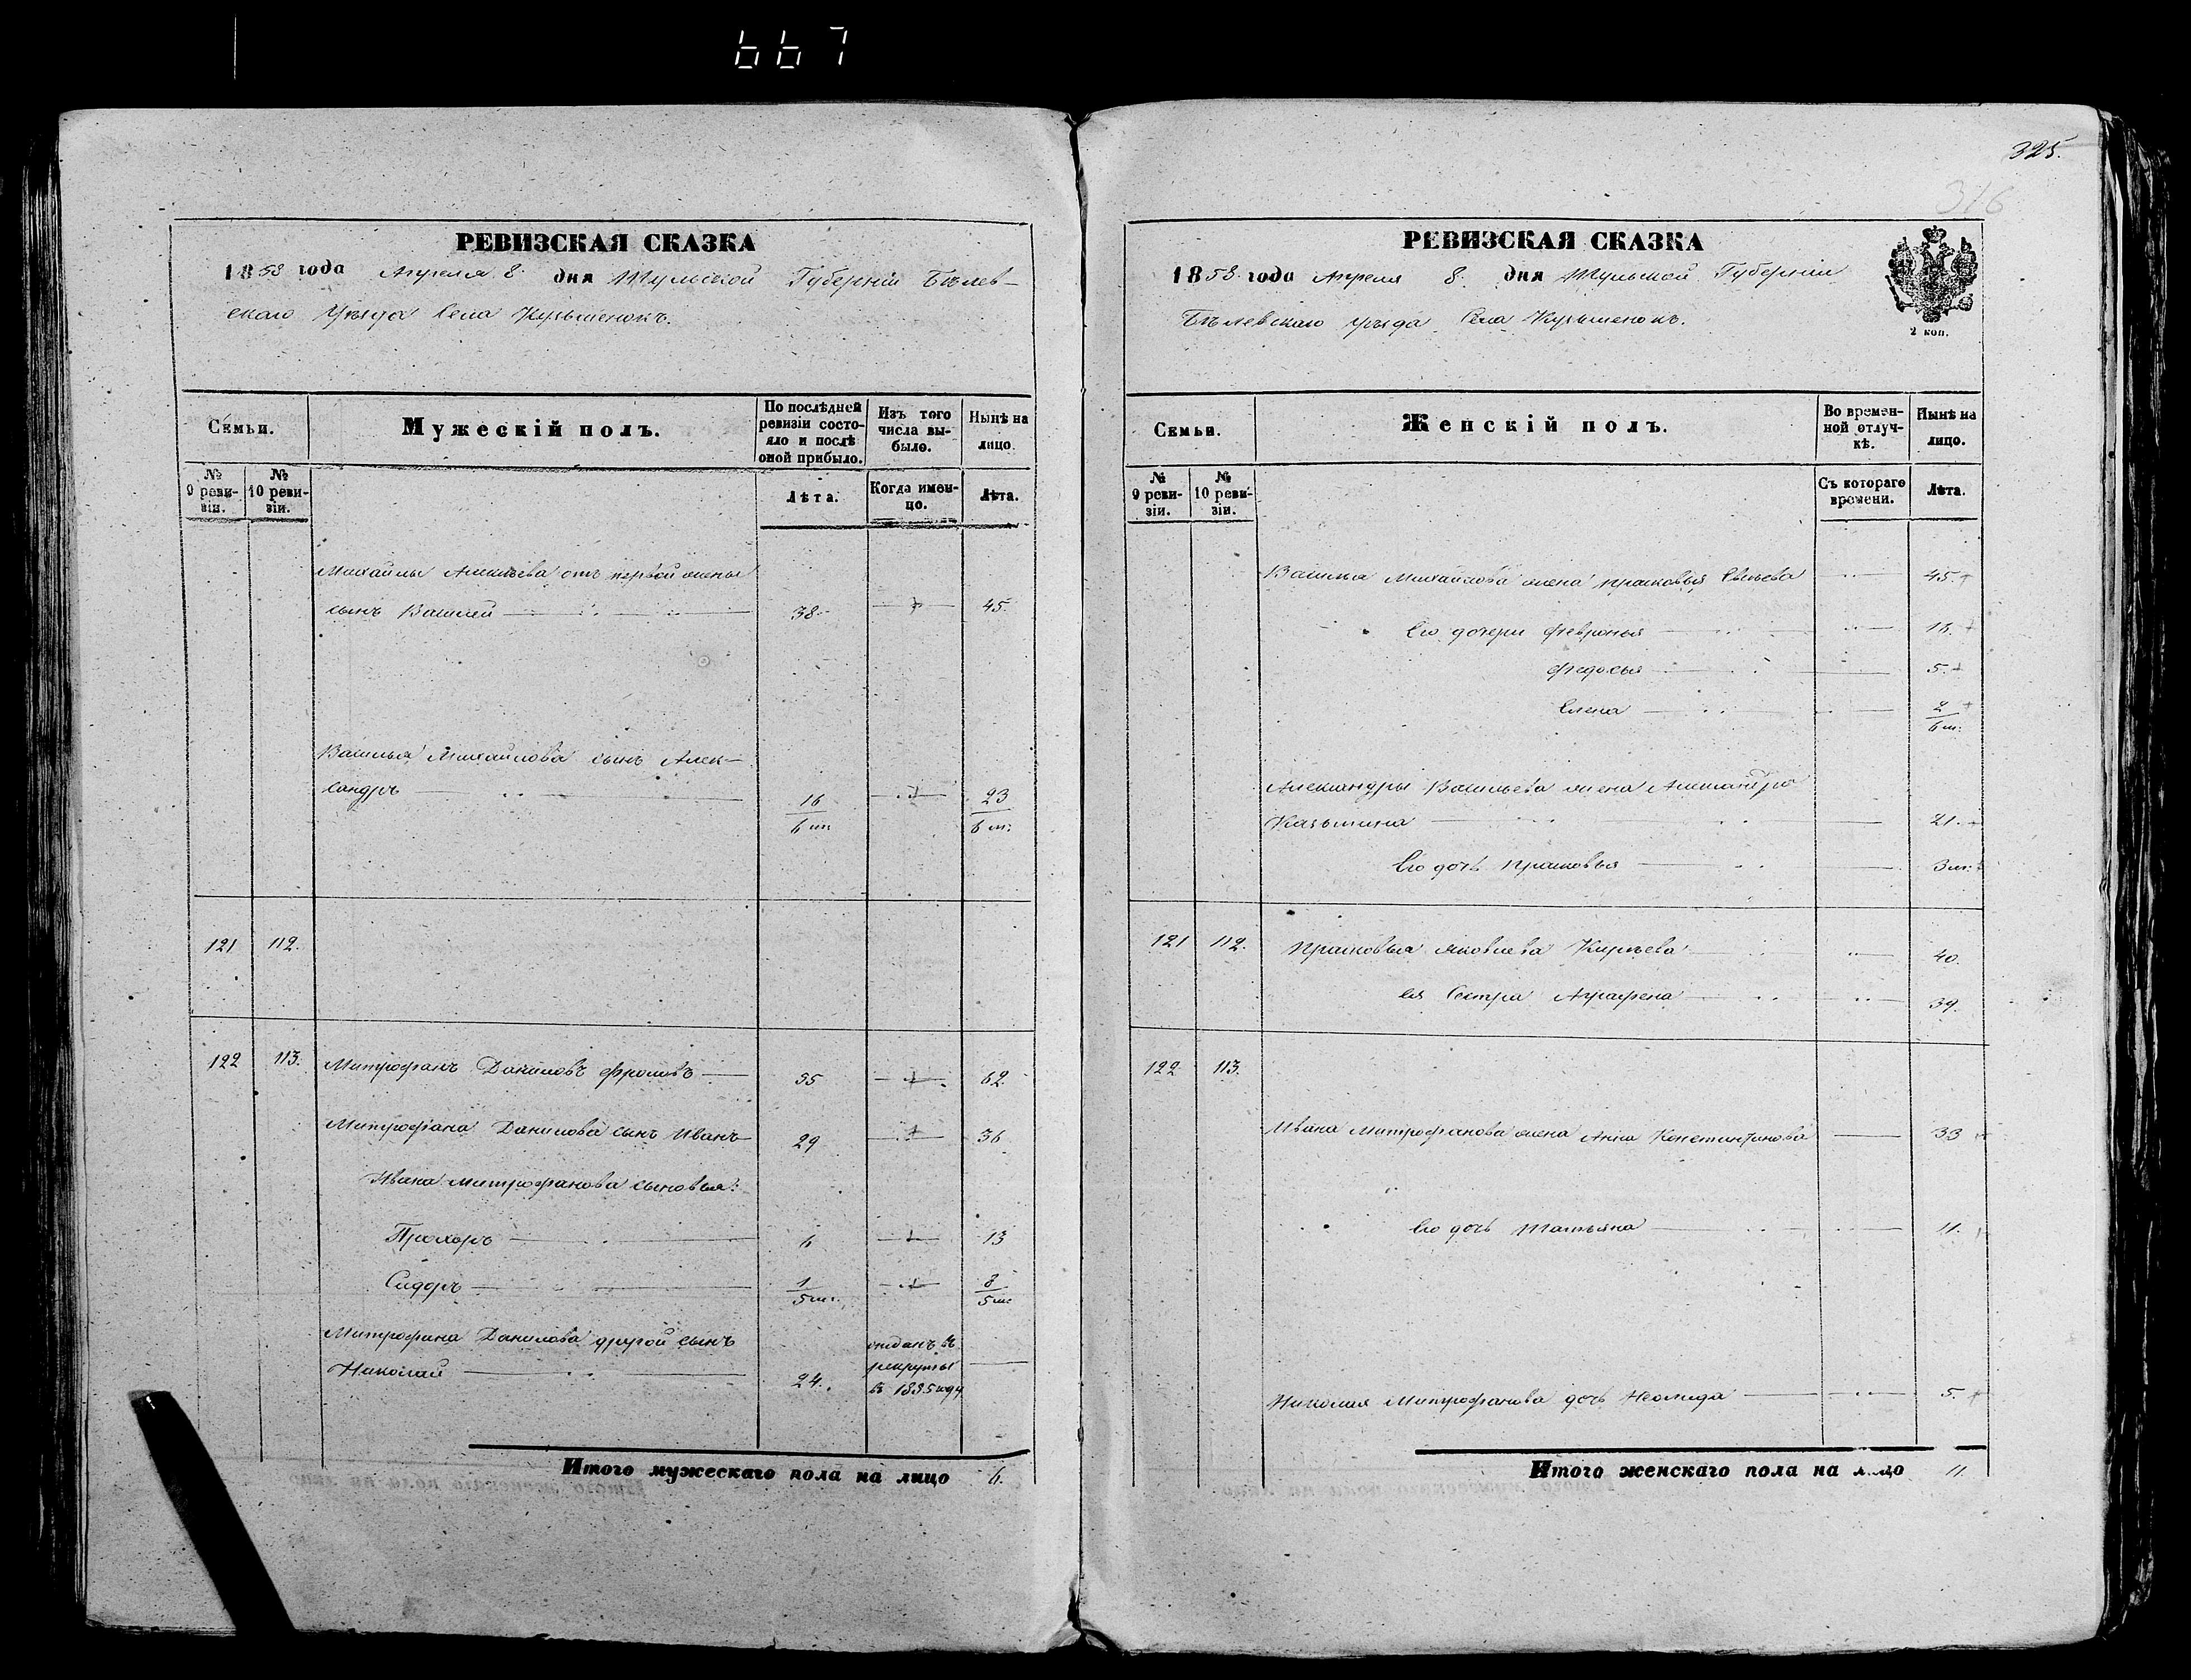 667
325.
316
РЕВИЗСКАЯ СКАЗКА
1858 года Апреля 8. дня Тульской Губерніи Бѣлев-
скаго Уѣзда Села Курышенокъ.
Семьи.
Мужескій полъ.
По послѣдней ревизіи состояло и послѣ оной прибыло.
Изъ того числа выбыло.
Нынѣ на лицо.
№ 9 ревизіи.
№ 10 ревизіи.
Лѣта.
Когда именно.
Лѣта.
Михайлы от первой жены
сынъ Василей 38. 45.
Василья Михайлова сынъ Алек-
сандръ 16 23
6 м. 6 м.
121 112.
122 113. Митрофанъ Даниловъ Фроловъ 55 62.
Митрофана Данилова сынъ Иванъ 29 36
Ивана Митрофанова сыновья:
Прохоръ 6 13
Сидоръ 1 8
5 м. 5 м.
Митрофана Данилова другой сынъ
Николай 24. отданъ въ рекруты въ 1855 году
Итого мужескаго пола на лицо 6.
РЕВИЗСКАЯ СКАЗКА
1858. года Апреля 8. дня Тульской Губерніи
Бѣлевскаго уѣзда Села Курышенокъ.
2 коп.
Семьи.
Женскій полъ.
Во временной отлучкѣ.
Нынѣ на лицо.
№ 9 ревизіи.
№ 10 ревизіи.
Съ котораго времени.
Лѣта.
Василья Михайлова жена Прасковья 45.
Его дочери Февронья 18.
Федосья 5.
Елена 2
6 м.
Александры Васильева жена Александра
Казьмина 21.
Его дочь Прасковья 3 м.
121 112. Прасковья Яковлева Киреева 40.
ея Сестра Аграфена 39.
122 113.
Ивана Митрофанова жена Анна Константинова 33
Его дочь Татьяна 11.
Николая Митрофанова дочь 5.
Итого женскаго пола на лицо 11.